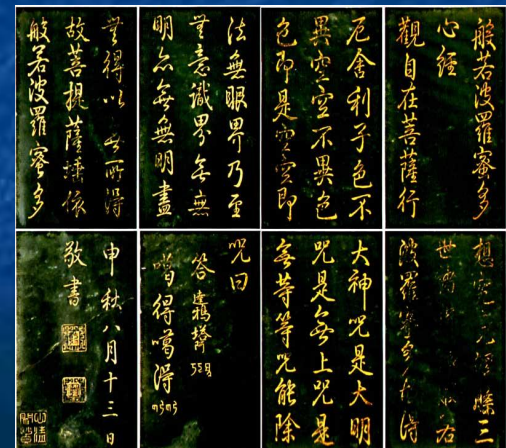 般若波羅蜜多
心經
觀自在菩薩行
厄舍利子色不
異空空不異色
色即是空空即
法無眼界乃至
無意識界無無
明亦無無明盡
無得以無所得
故菩提薩埵依
般若波羅蜜多
想究竟涅槃三
世諸
波羅蜜多故得
大神呪是大明
呪是無上呪是
無等等呪能除
呪曰
答
得噶得
申秋八月十三日
敬書